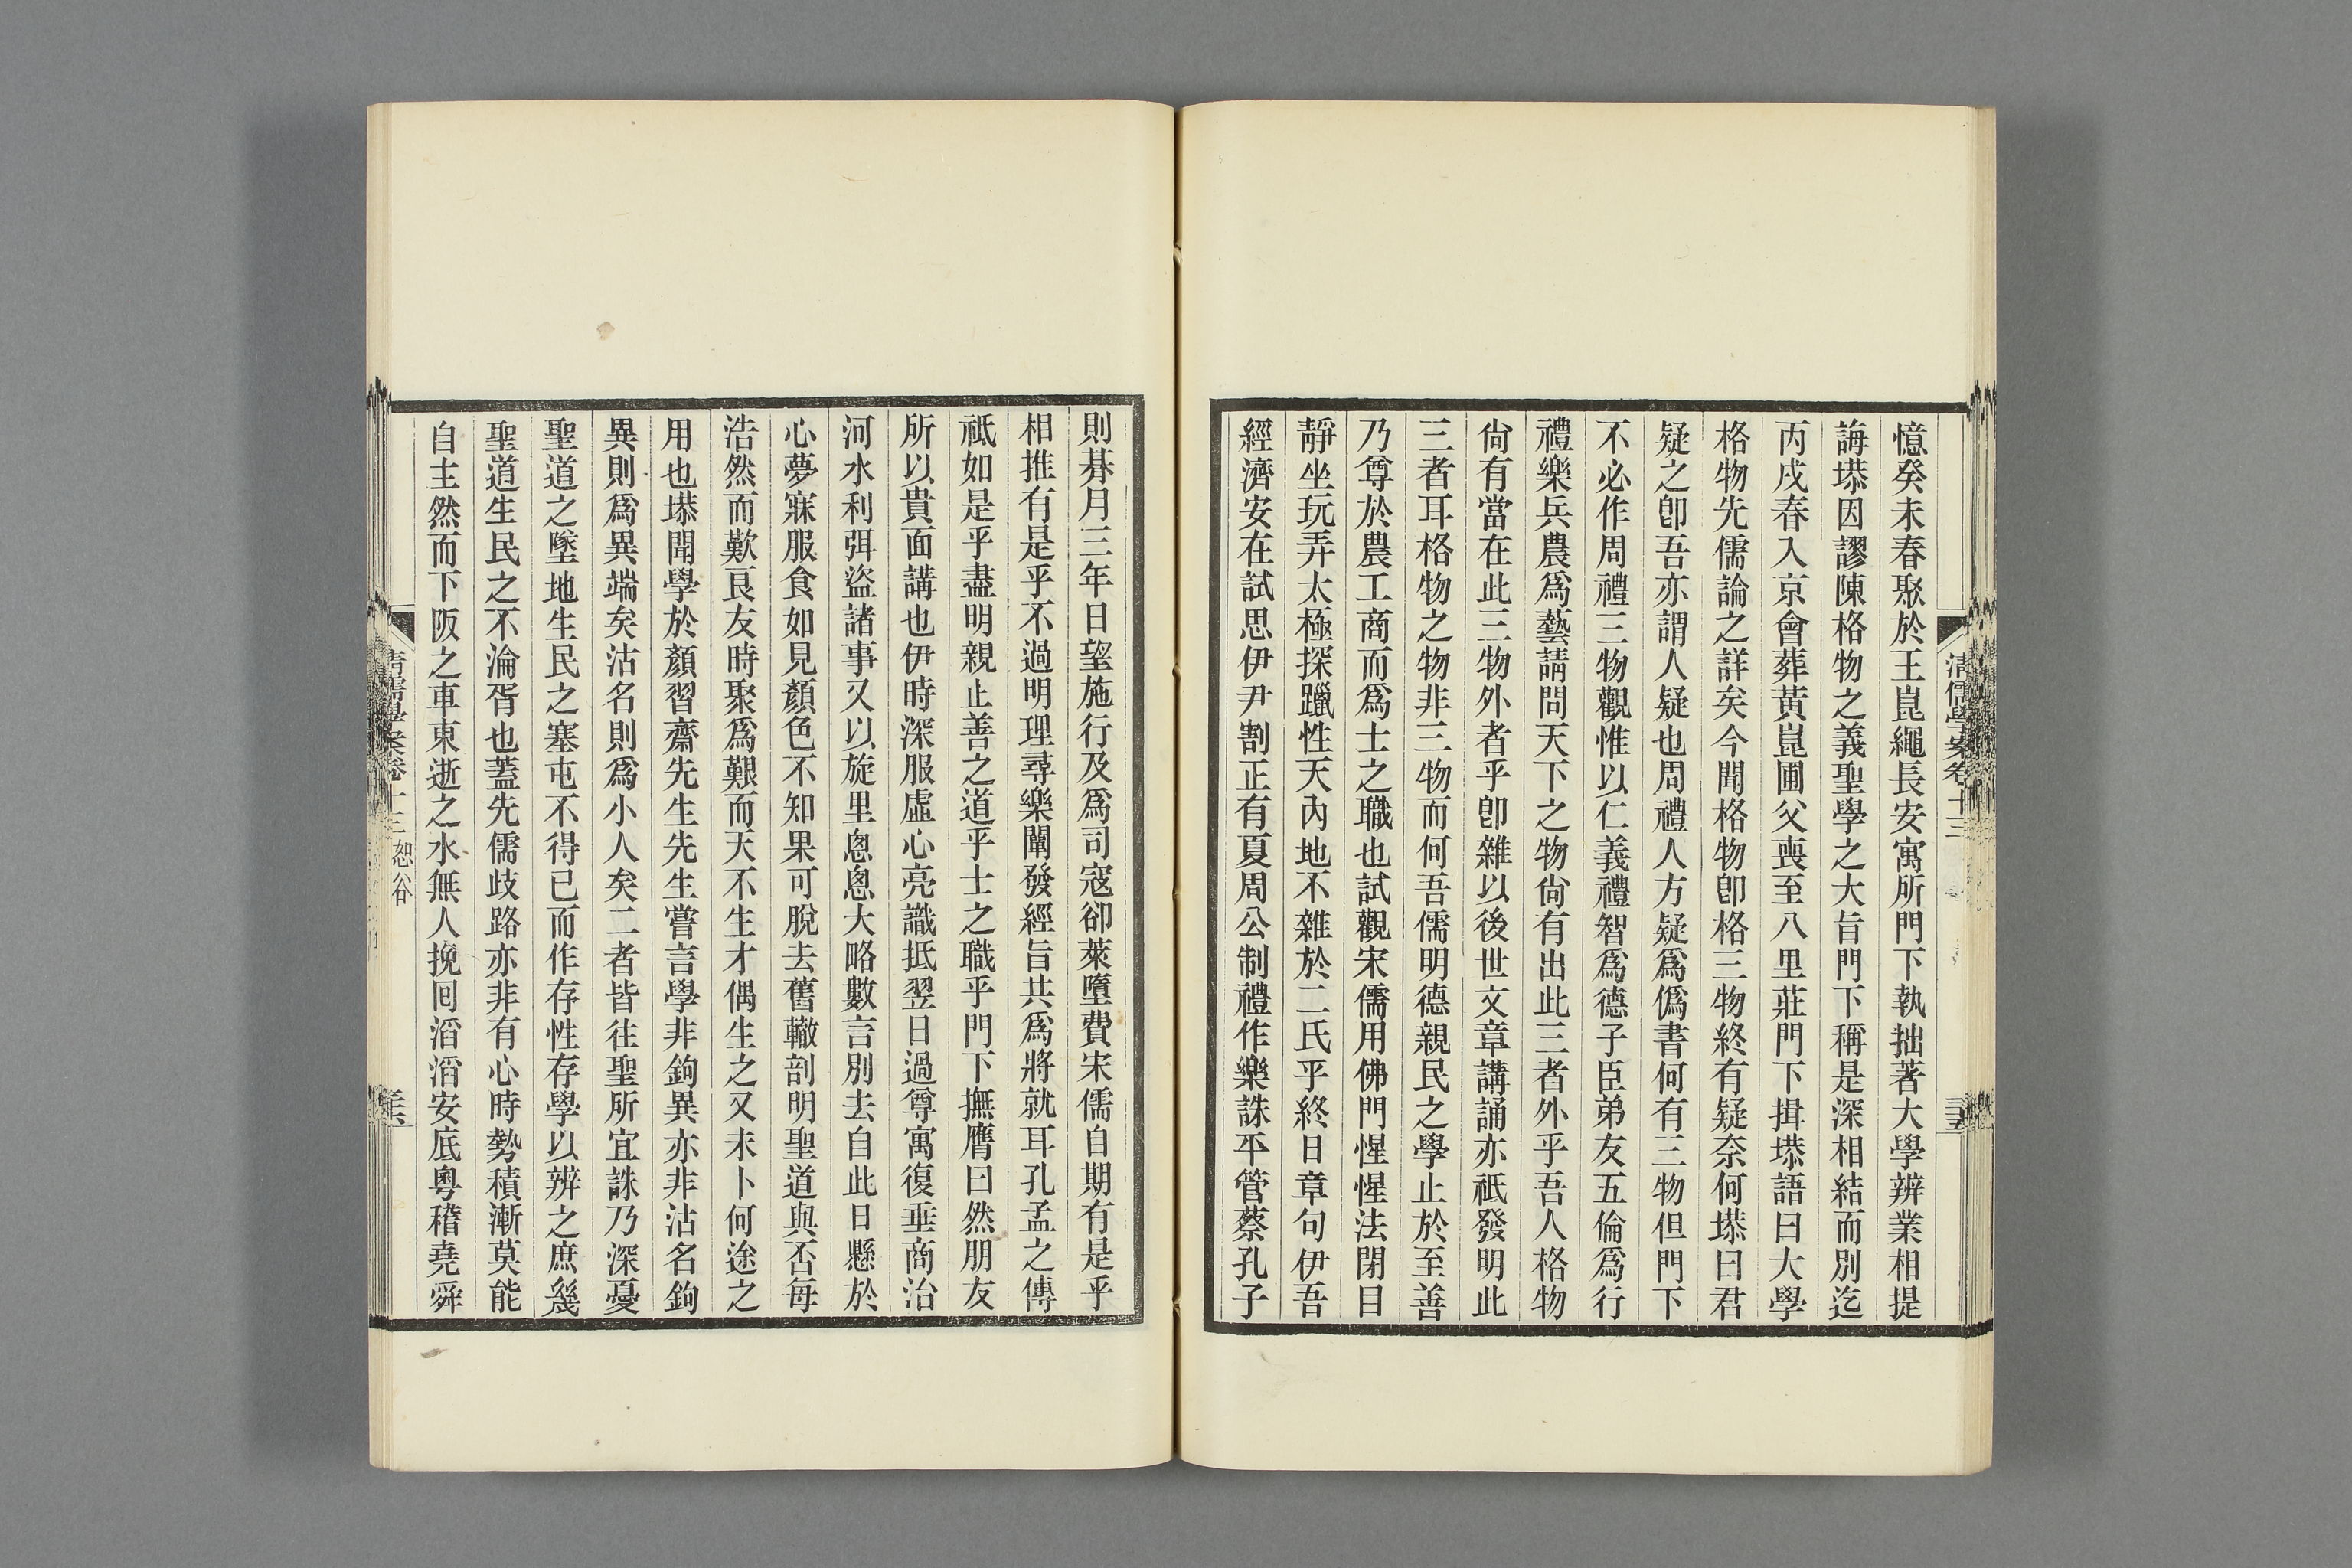 憶癸未春聚於王崑繩長安寓所門下執拙著大學辨業相提
誨塨因謬陳格物之義聖學之大旨門下稱是深相結而別迄
丙戌春入京會葬黃崑圃父喪至八里莊門下揖塨語曰大學
格物先儒論之詳矣今聞格物卽格三物終有疑奈何塨曰君
疑之卽吾亦謂人疑也周禮人方疑爲僞書何有三物但門下
不必作周禮三物觀惟以仁義禮智爲德子臣弟友五倫爲行
禮樂兵農爲藝請問天下之物尙有出此三者外乎吾人格物
尙有當在此三物外者乎卽雜以後世文章講誦亦祗發明此
三者耳格物之物非三物而何吾儒明德親民之學止於至善
乃尊於農工商而爲士之職也試觀宋儒用佛門惺惺法閉目
靜坐玩弄太極探躐性天內地不雜於二氏乎終日章句伊吾
經濟安在試思伊尹割正有夏周公制禮作樂誅平管蔡孔子
清儒學案卷十三
三五
則朞月三年日望施行及爲司寇卻萊墮費宋儒自期有是乎
相推有是乎不過明理尋樂闡發經旨共爲將就耳孔孟之傳
祗如是乎盡明親止善之道乎士之職乎門下撫膺曰然朋友
所以貴面講也伊時深服虛心亮識抵翌日過尊寓復垂商治
河水利弭盜諸事又以旋里悤悤大略數言別去自此日懸於
心夢寐服食如見顏色不知果可脫去舊轍剖明聖道與否每
浩然而歎良友時聚爲艱而天不生才偶生之又未卜何途之
用也塨聞學於顏習齋先生先生嘗言學非鉤異亦非沽名鉤
異則爲異端矣沽名則爲小人矣二者皆往聖所宜誅乃深憂
聖道之墜地生民之塞屯不得已而作存性存學以辨之庶幾
聖道生民之不淪胥也蓋先儒歧路亦非有心時勢積漸莫能
自主然而下阪之車東逝之水無人挽囘滔滔安底粵稽堯舜
清儒學案卷十三 恕谷
三六